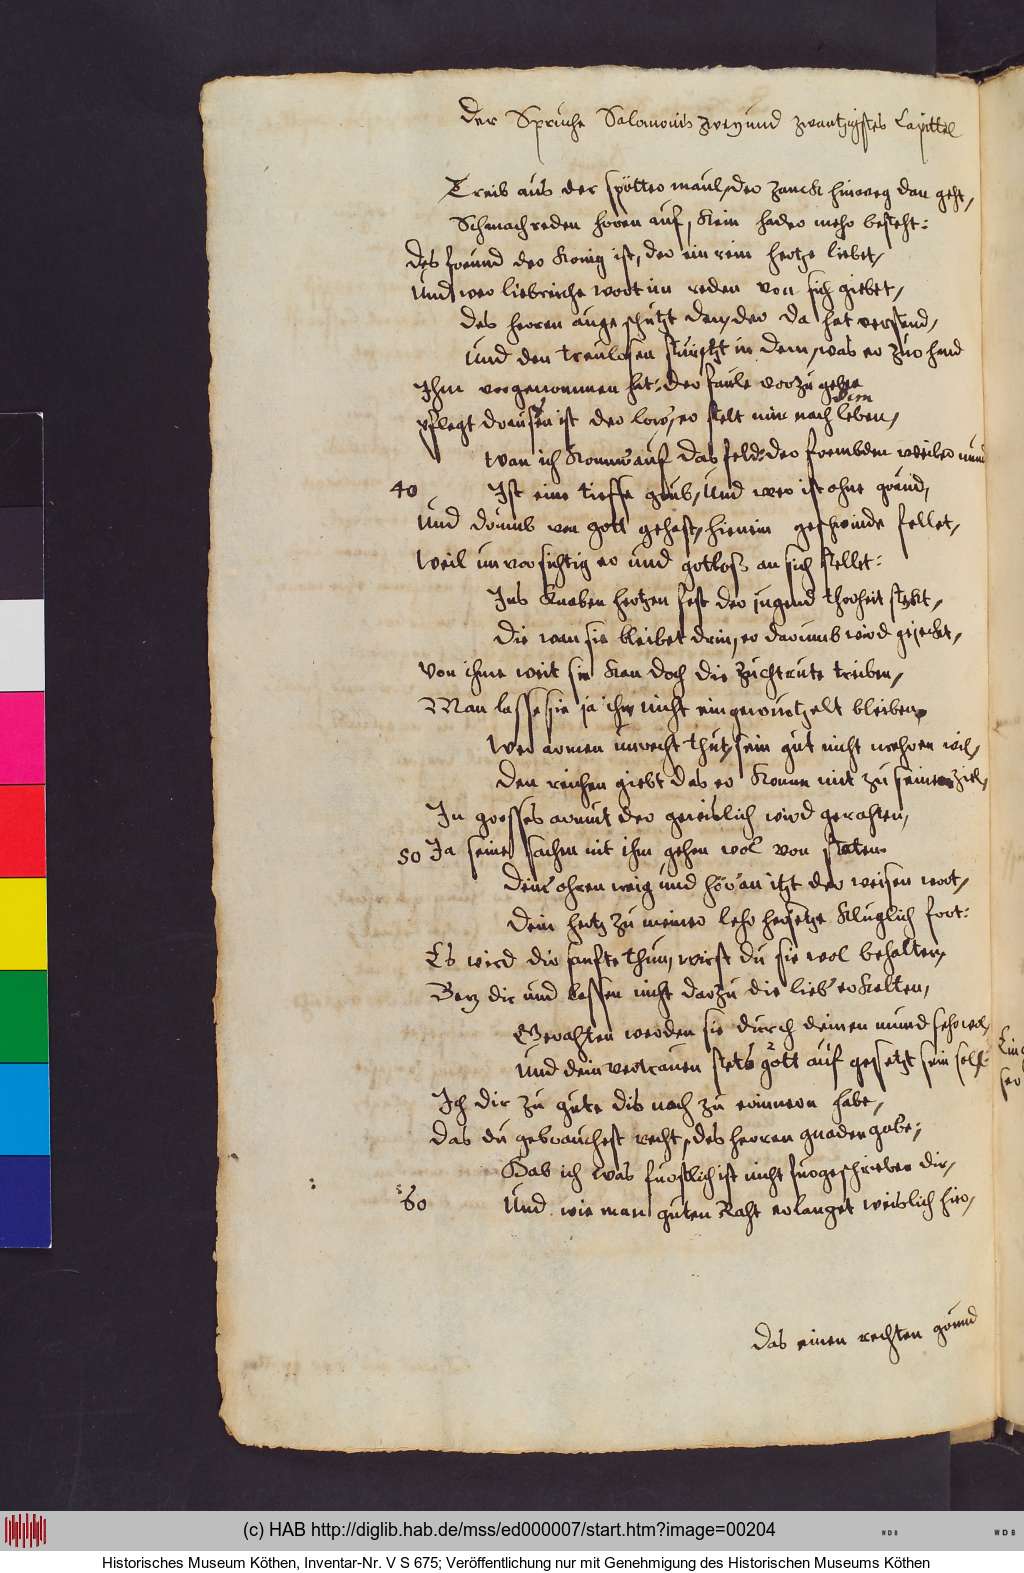 Der Spruche Salomonis zwey und zwantzigstes Capittel
Treib aus der spötter maul, der zanck hinweg dan geht,
Schmachreden horen auf, kein hader mehr besteht:
des freund der Konig ist, der ein rein hertze liebet,
Und wer liebreiche wort im reden von sich giebet,
des herren auge schützt den, der da hat verstend,
Und den treulosen stürtzt in dem, was er zur hand
Ihm vorgenommen hat: der faule vorzugeben
pflegt draussen ist der low, er stelt mir nach dem leben,
Wan ich komm' auf das feld: der frembden weiber mund
40 Ist eine tieffe grub, Und wer ist ohne grund,
Und drumb von gott gehast, hienein geschwinde fellet,
Weil unvorsichtig er und gotloß an sich stellet:
Ins Knaben hertzen fest der jugend thorheit stekt,
Die wan sie bleibet drin, er darumb wird gejeckt,
Von ihme weit sie kan doch die zuchtrute treiben,
Man lasse sie ja ihm nicht eingewurtzelt bleiben,
Wer armen unrecht thut, sein gut nicht mehren wil,
Den reichen giebt das er komme mit zu seinem ziel,
In grosses armut der gewislich wird gerahten,
50 Ja seine sachen nit ihm gehen wol von staten.
Dein' ohren neig und hör an itzt der weisen wort,
Dein hertz zu meiner lehr hersetze klüglich fort:
Es wird dir sanfte thun, wirst du sie wol behalten,
Bey dir und lassen nicht darzu die lieb' erkalten,
Gerahten werden sie durch deinen mund sehr wol,
Und dein vertrauen stets gott auf gesetzt sein soll:
Ich dir zu gute dis noch zu erinnern habe,
Das du gebrauchest recht, des herren gnadengabe;
Hab ich was furstlich ist nicht furgeschrieben dir,
60 Und wie man guten Raht erlanget weislich hier,
Das einen rechten grund
(c) HAB http://diglib.hab.de/mss/ed000007/start.htm?image=00204
Historisches Museum Köthen, Inventar-Nr. V S 675; Veröffentlichung nur mit Genehmigung des Historischen Museums Köthen